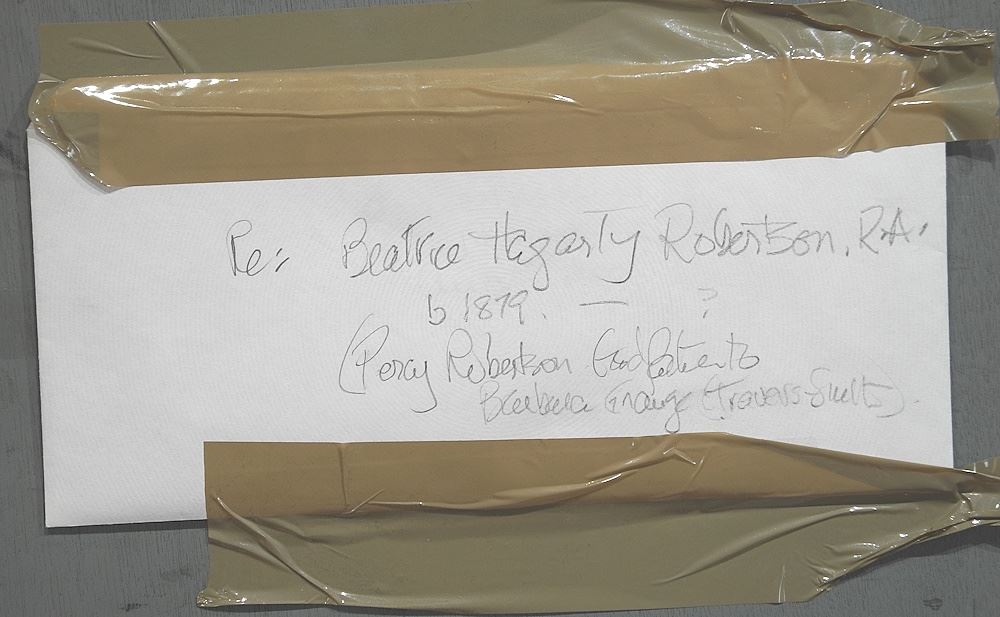 Re: Beatrice Hagarty Robertson, R.A.
b 1879. — ?
(Percy Robertson Godfather to
Barbara Grange (Travers-Smith).